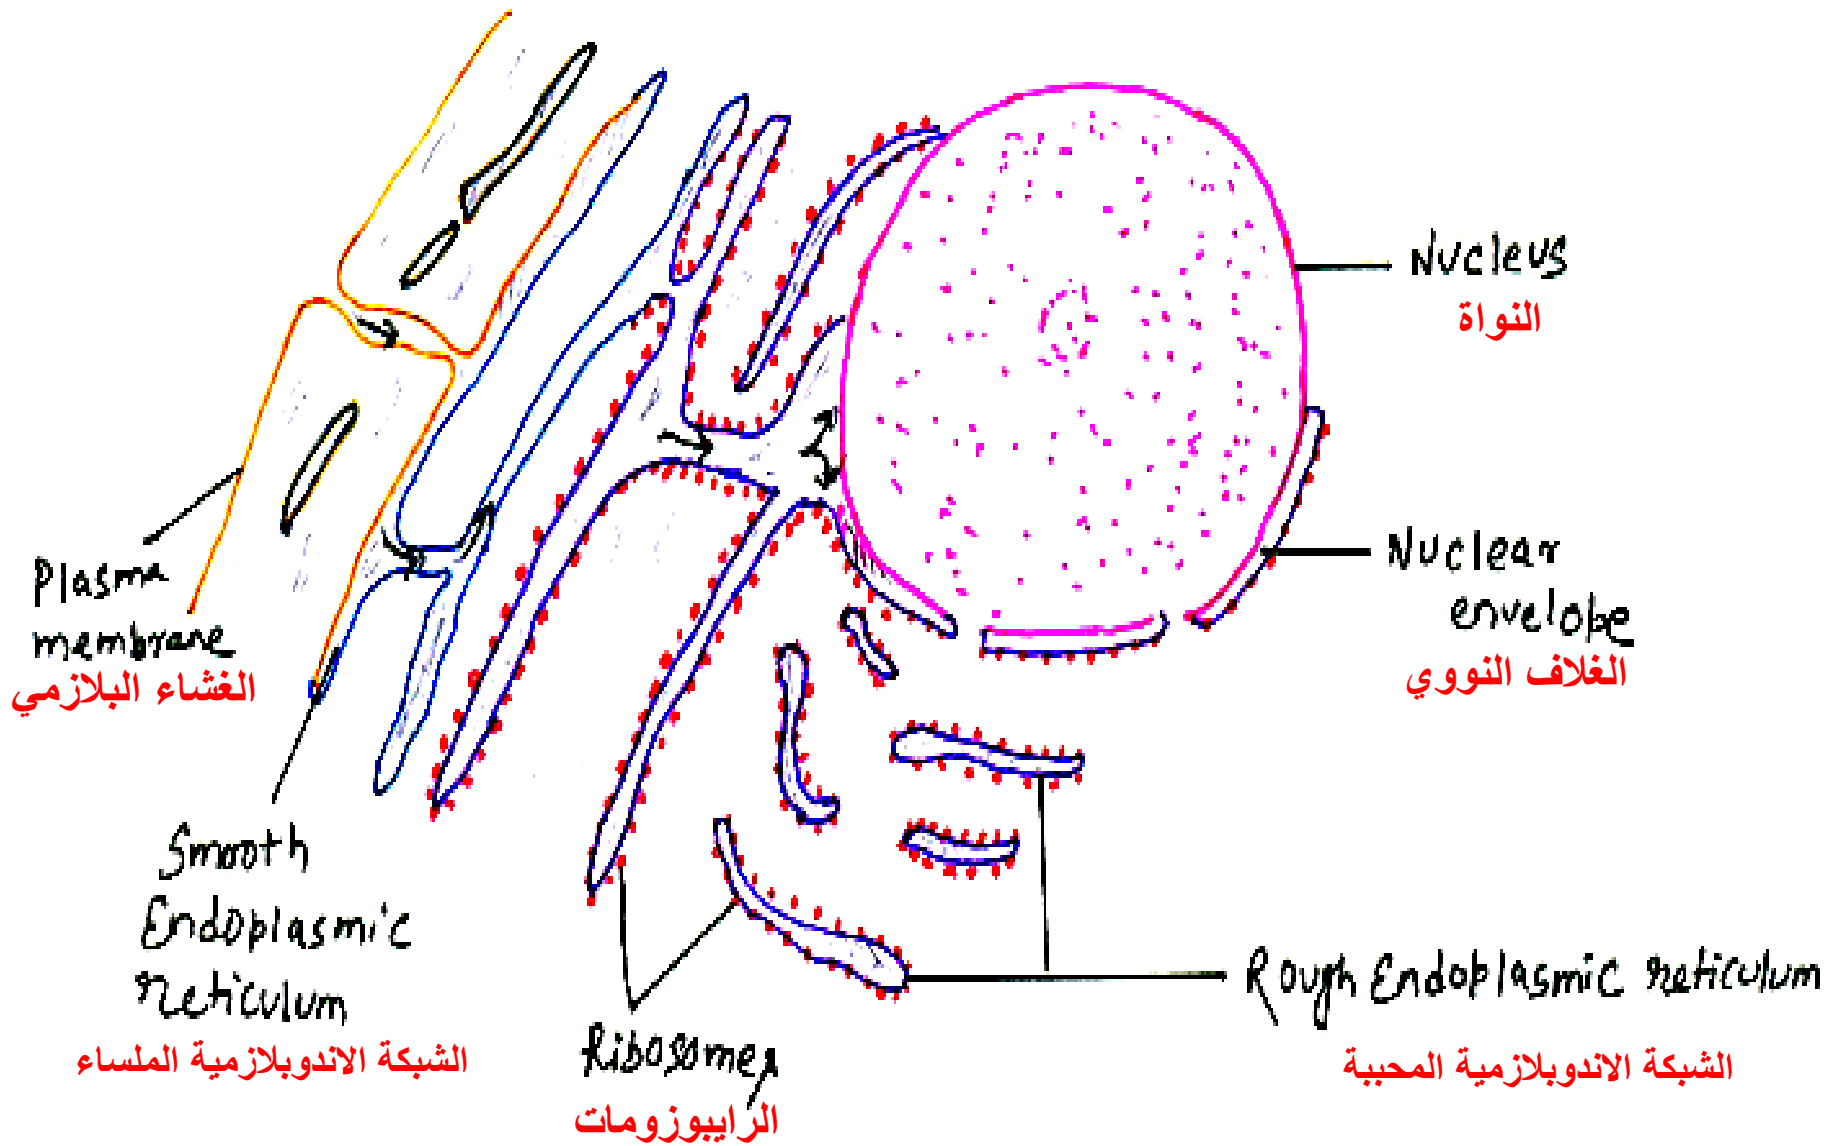 Nucleus
النواة
Plasma
membrane
الغشاء البلازمي
Nuclear
envelope
الغلاف النووي
Smooth
Endoplasmic
reticulum
الشبكة الاندوبلازمية الملساء
Ribosomes
الرايبوزومات
Rough Endoplasmic reticulum
الشبكة الاندوبلازمية المحببة